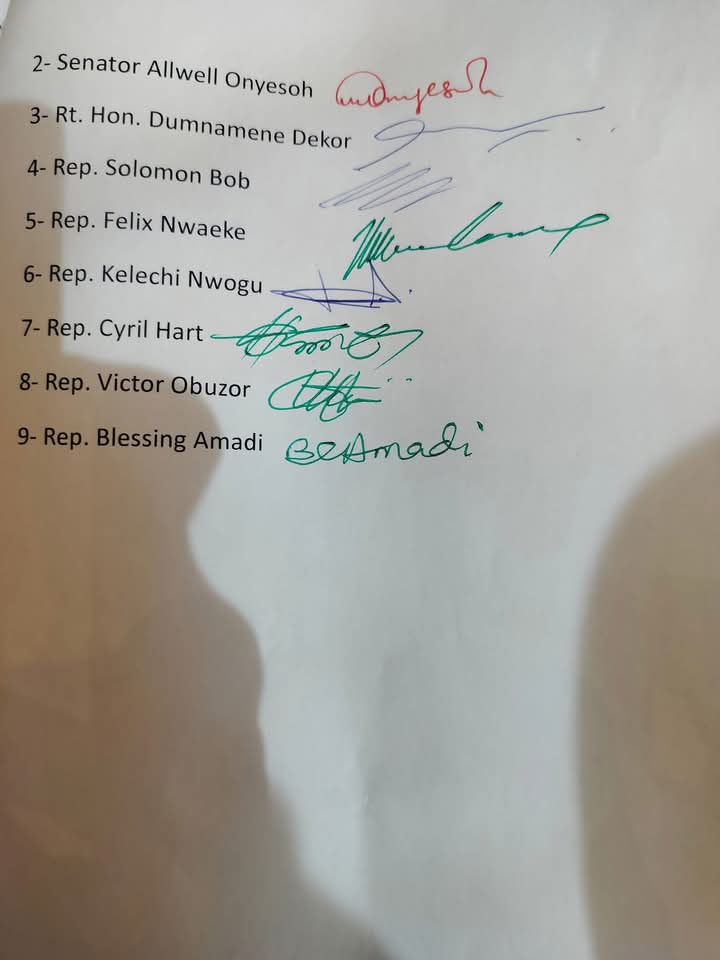 2- Senator Allwell Onyesoh
3- Rt. Hon. Dumnamene Dekor
4- Rep. Solomon Bob
5- Rep. Felix Nwaeke
6- Rep. Kelechi Nwogu
7- Rep. Cyril Hart
8- Rep. Victor Obuzor
9- Rep. Blessing Amadi BLAmadi